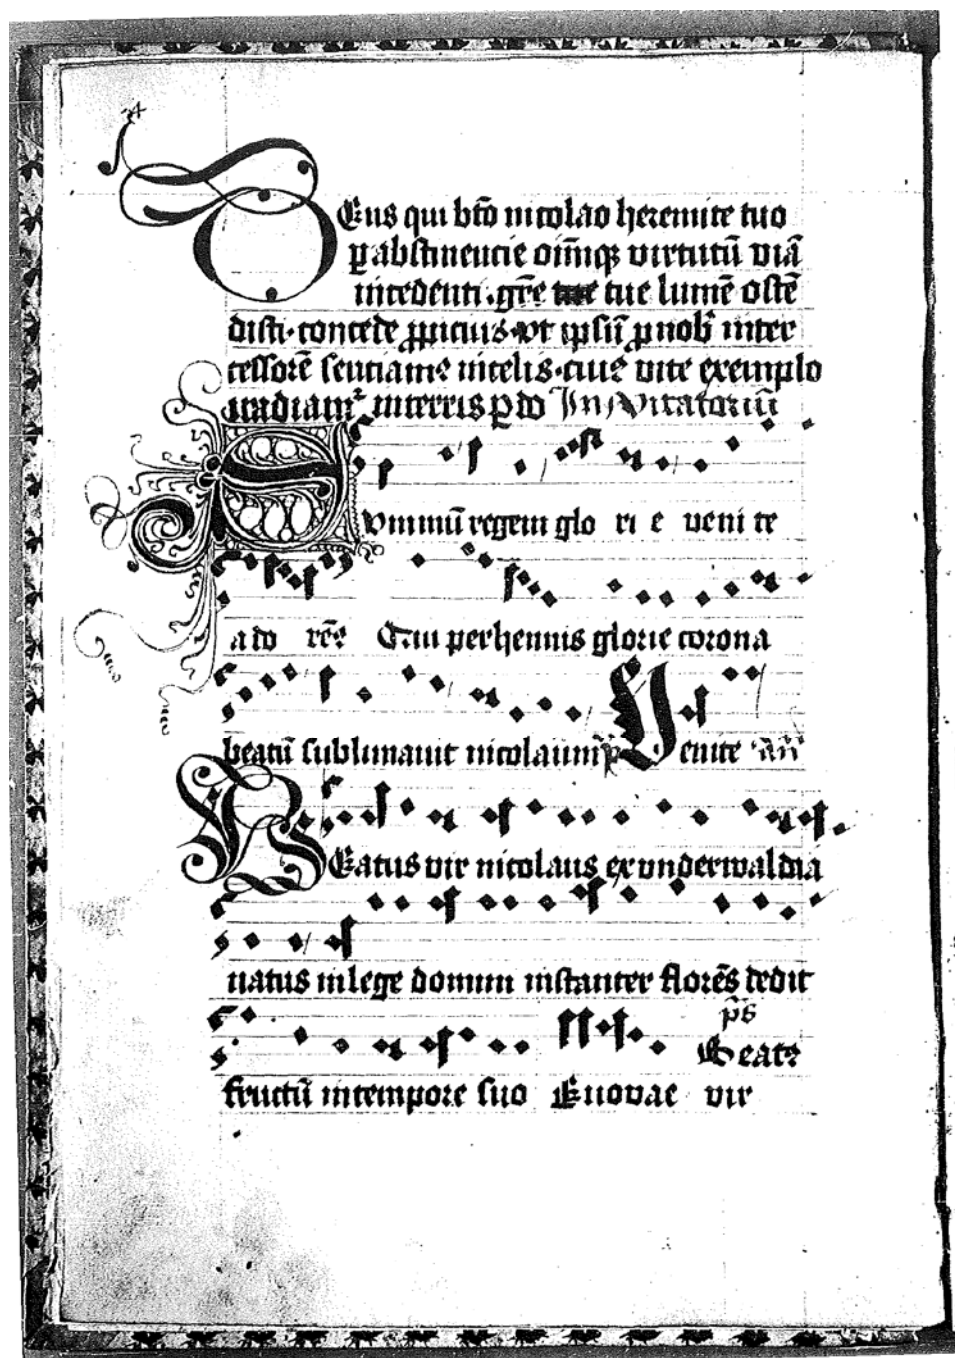 Deus qui bto nicolao heremite tuo
p abstinencie oimq virtutu via
incedenti gre tue lume oste
disti concede ppicius vt ipsu p nob inter
cessore senciam in celis cui vite exemplo
iradiam in terris p do Invitatoriu
Eviternu regem glo ri e veni te
a do rem Qui perhennis glorie corona
beatu sublimauit nicolaum ps Venite an
Beatus vir nicolaus ex vnderwaldia
natus in lege domini instanter flores dedit
ps
Beat
fructu in tempore suo Euouae vir